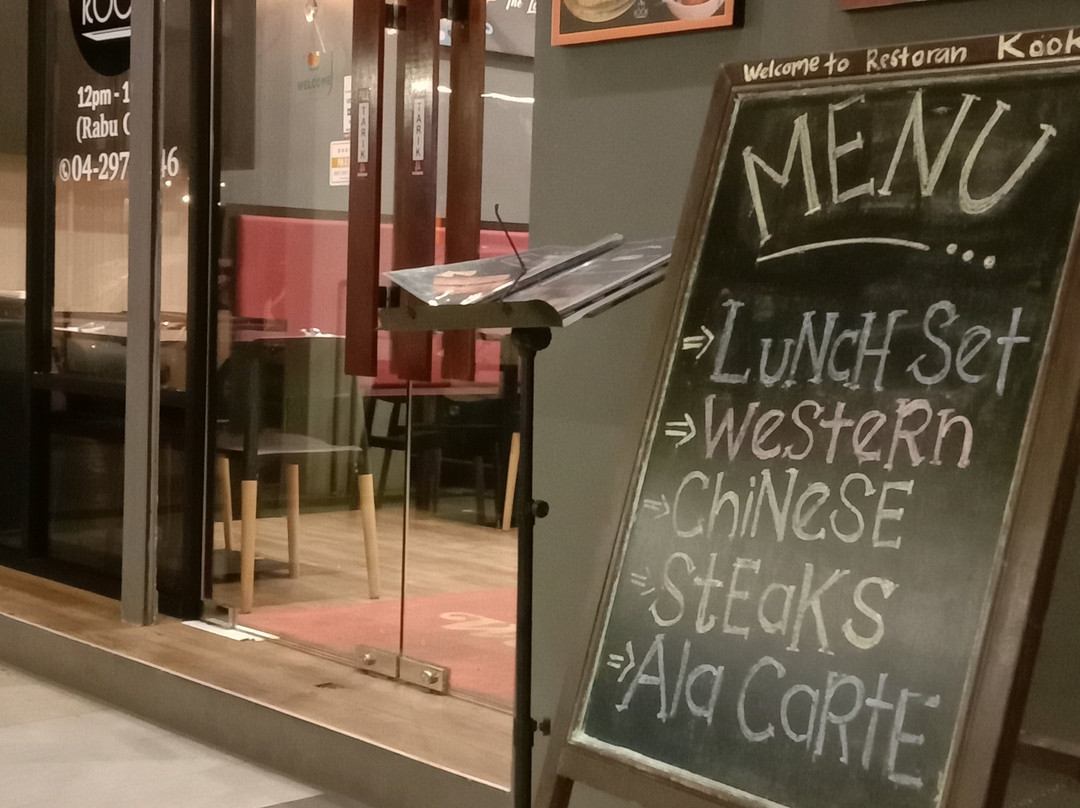 KOO
12pm - 1
(Rabu C
04-297 46
WELCOME
TARIK
TARIK
The
Welcome to Restoran Kook
MENU
...
⇒ LuNcH Set
⇒ WesteRn
⇒ ChiNeSE
⇒ StEaKS
⇒ Ala CaRtE